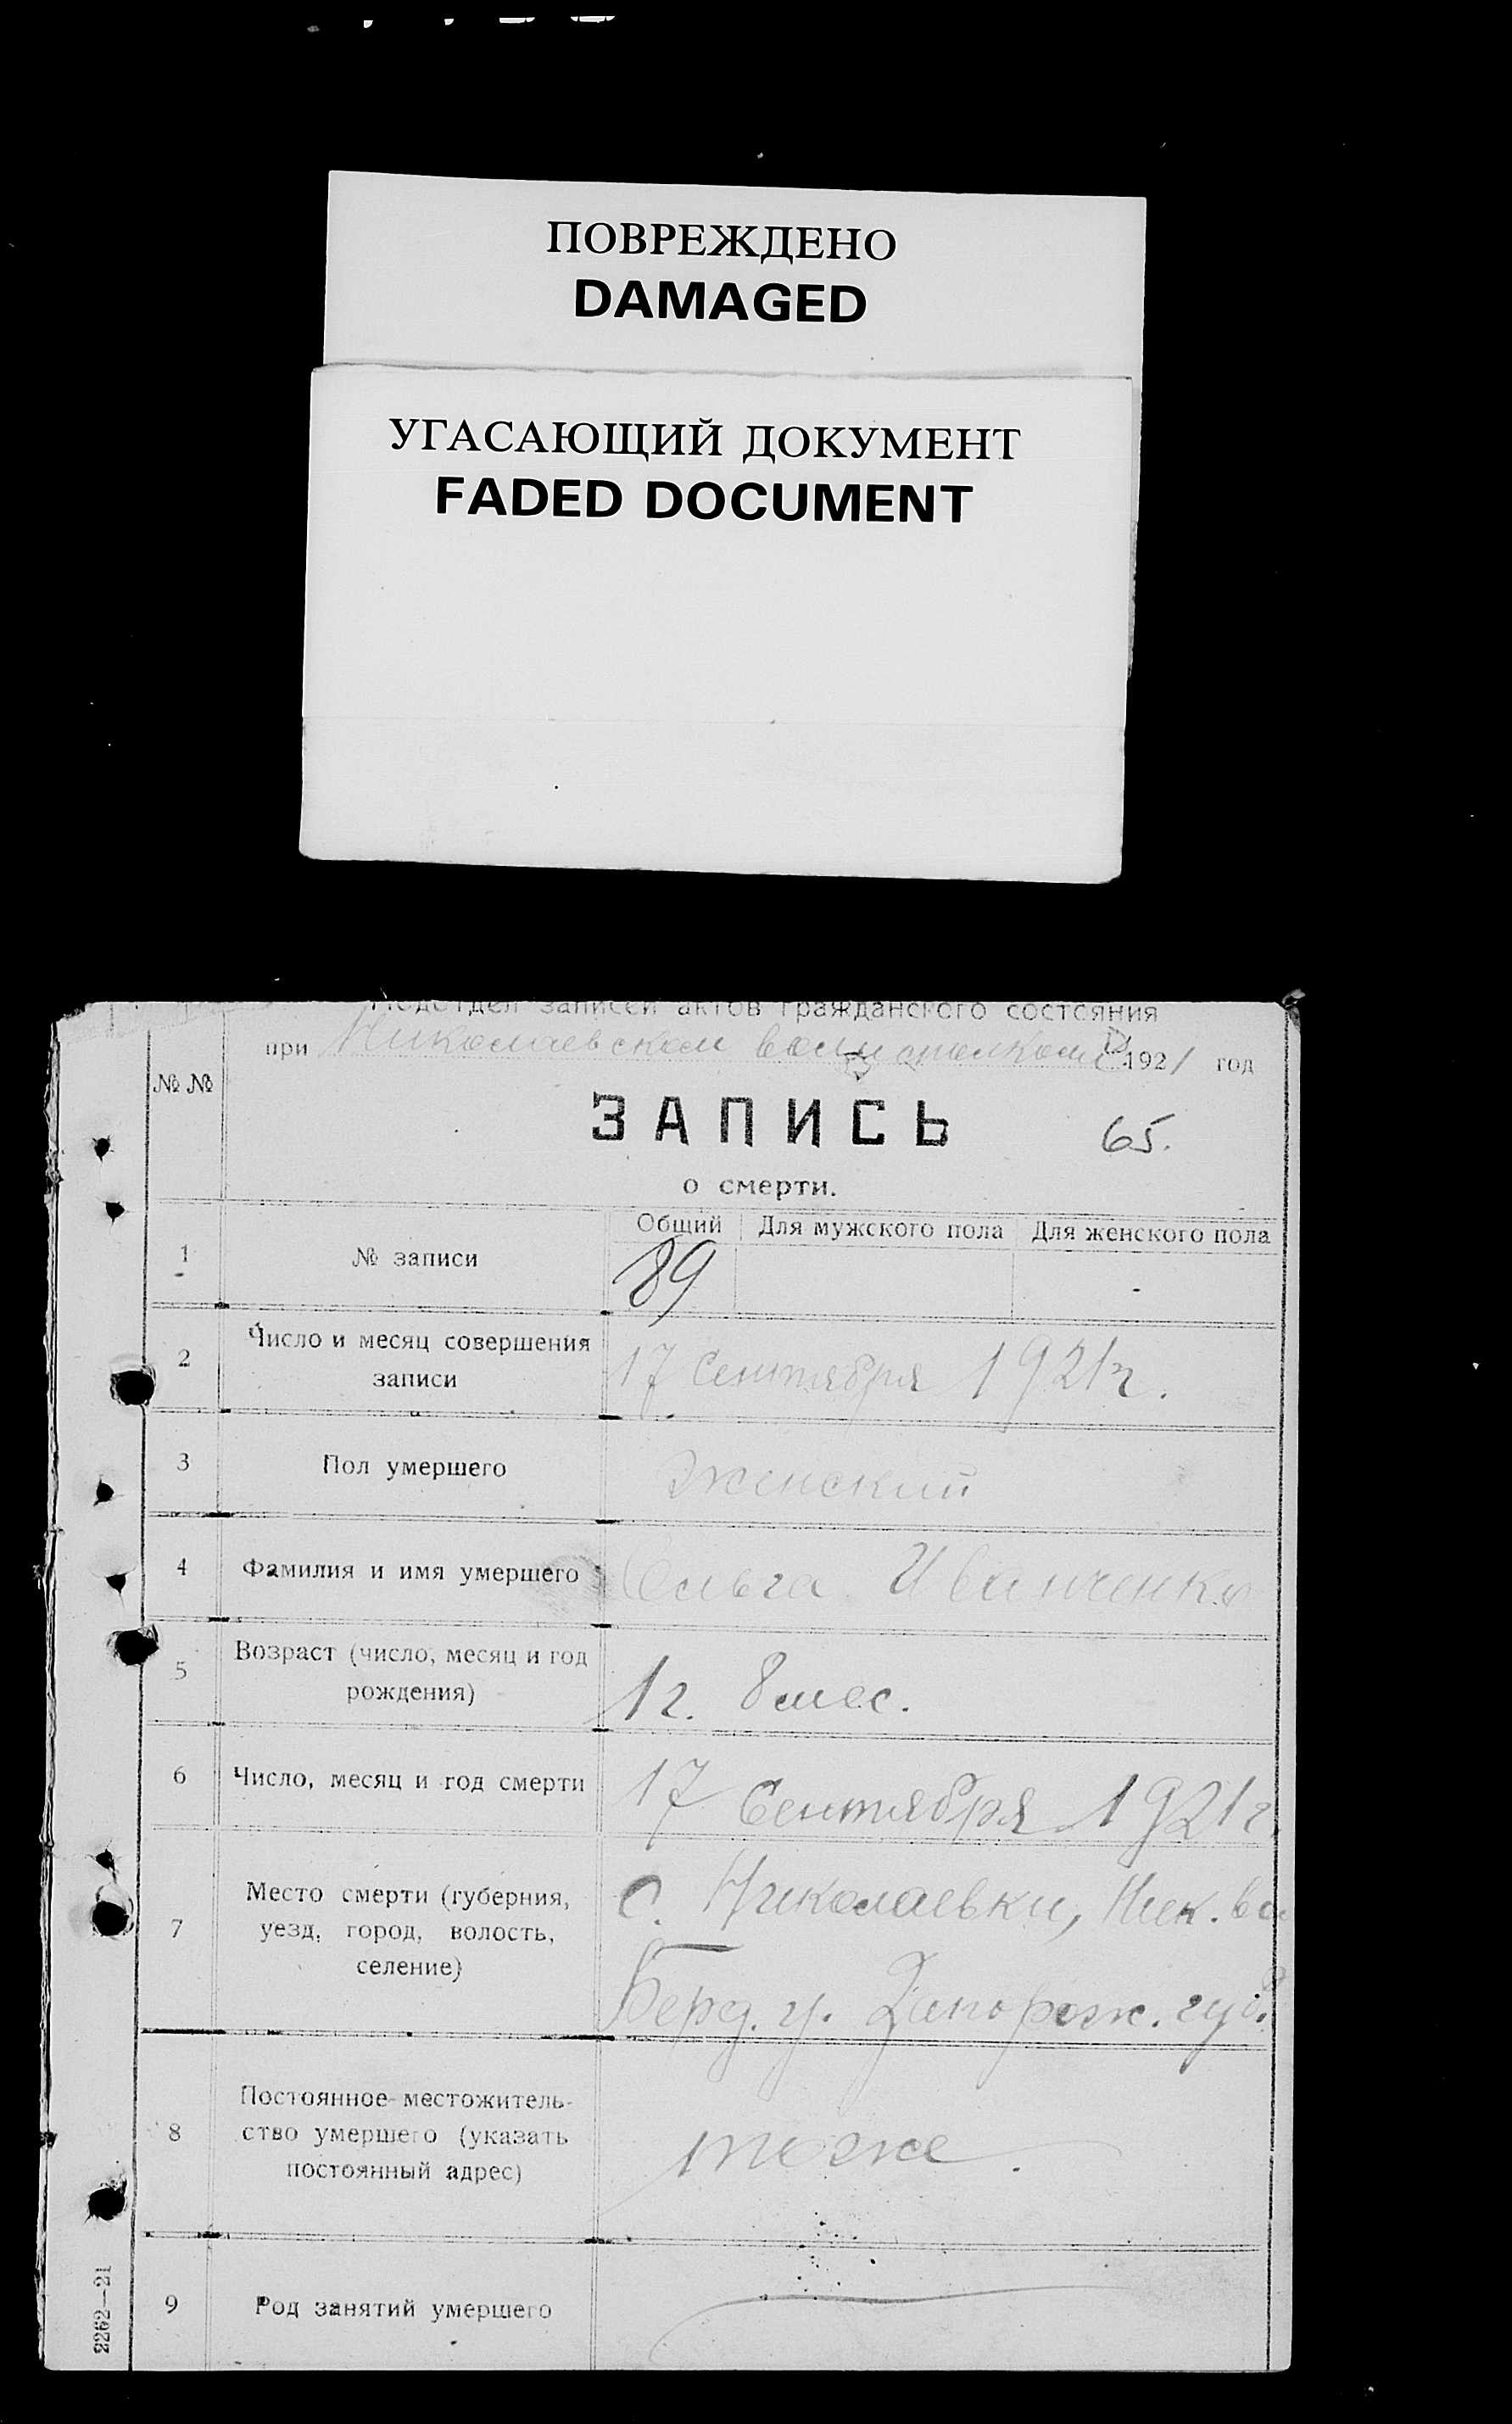 ПОВРЕЖДЕНО
DAMAGED
УГАСАЮЩИЙ ДОКУМЕНТ
FADED DOCUMENT
Подотдел записей актов гражданского состояния
при Николаевском 1921 год
№ №
ЗАПИСЬ
65.
о смерти.
Общий Для мужского пола Для женского пола
1 № записи 89 -
2 Число и месяц совершения
записи
17 Сентября 1921 г.
3 Пол умершего Женский
4 Фамилия и имя умершего Ольга Иванченко
5 Возраст (число, месяц и год
рождения)
1 г. 8 мес.
6 Число, месяц и год смерти 17 Сентября 1921 г.
7 Место смерти (губерния,
уезд, город, волость,
селение)
с. Николаевки, Ник. во
Берд. у. Запорож. губ.
8 Постоянное местожитель-
ство умершего (указать
постоянный адрес)
тоже.
9 Род занятий умершего
2262—21